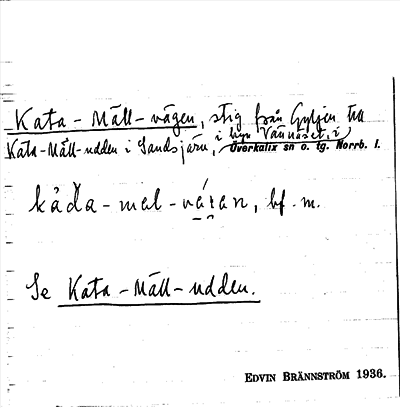 Kata-Mäll-vägen, stig från Gyljen till
Kata-Mäll-udden i Sandsjärv, i byn Vännäset, i
Överkalix sn o. tg. Norrb. l.
kåda-mel-vá̱ran, bf. m.
Se Kata-Mäll-udden.
EDVIN BRÄNNSTRÖM 1936.